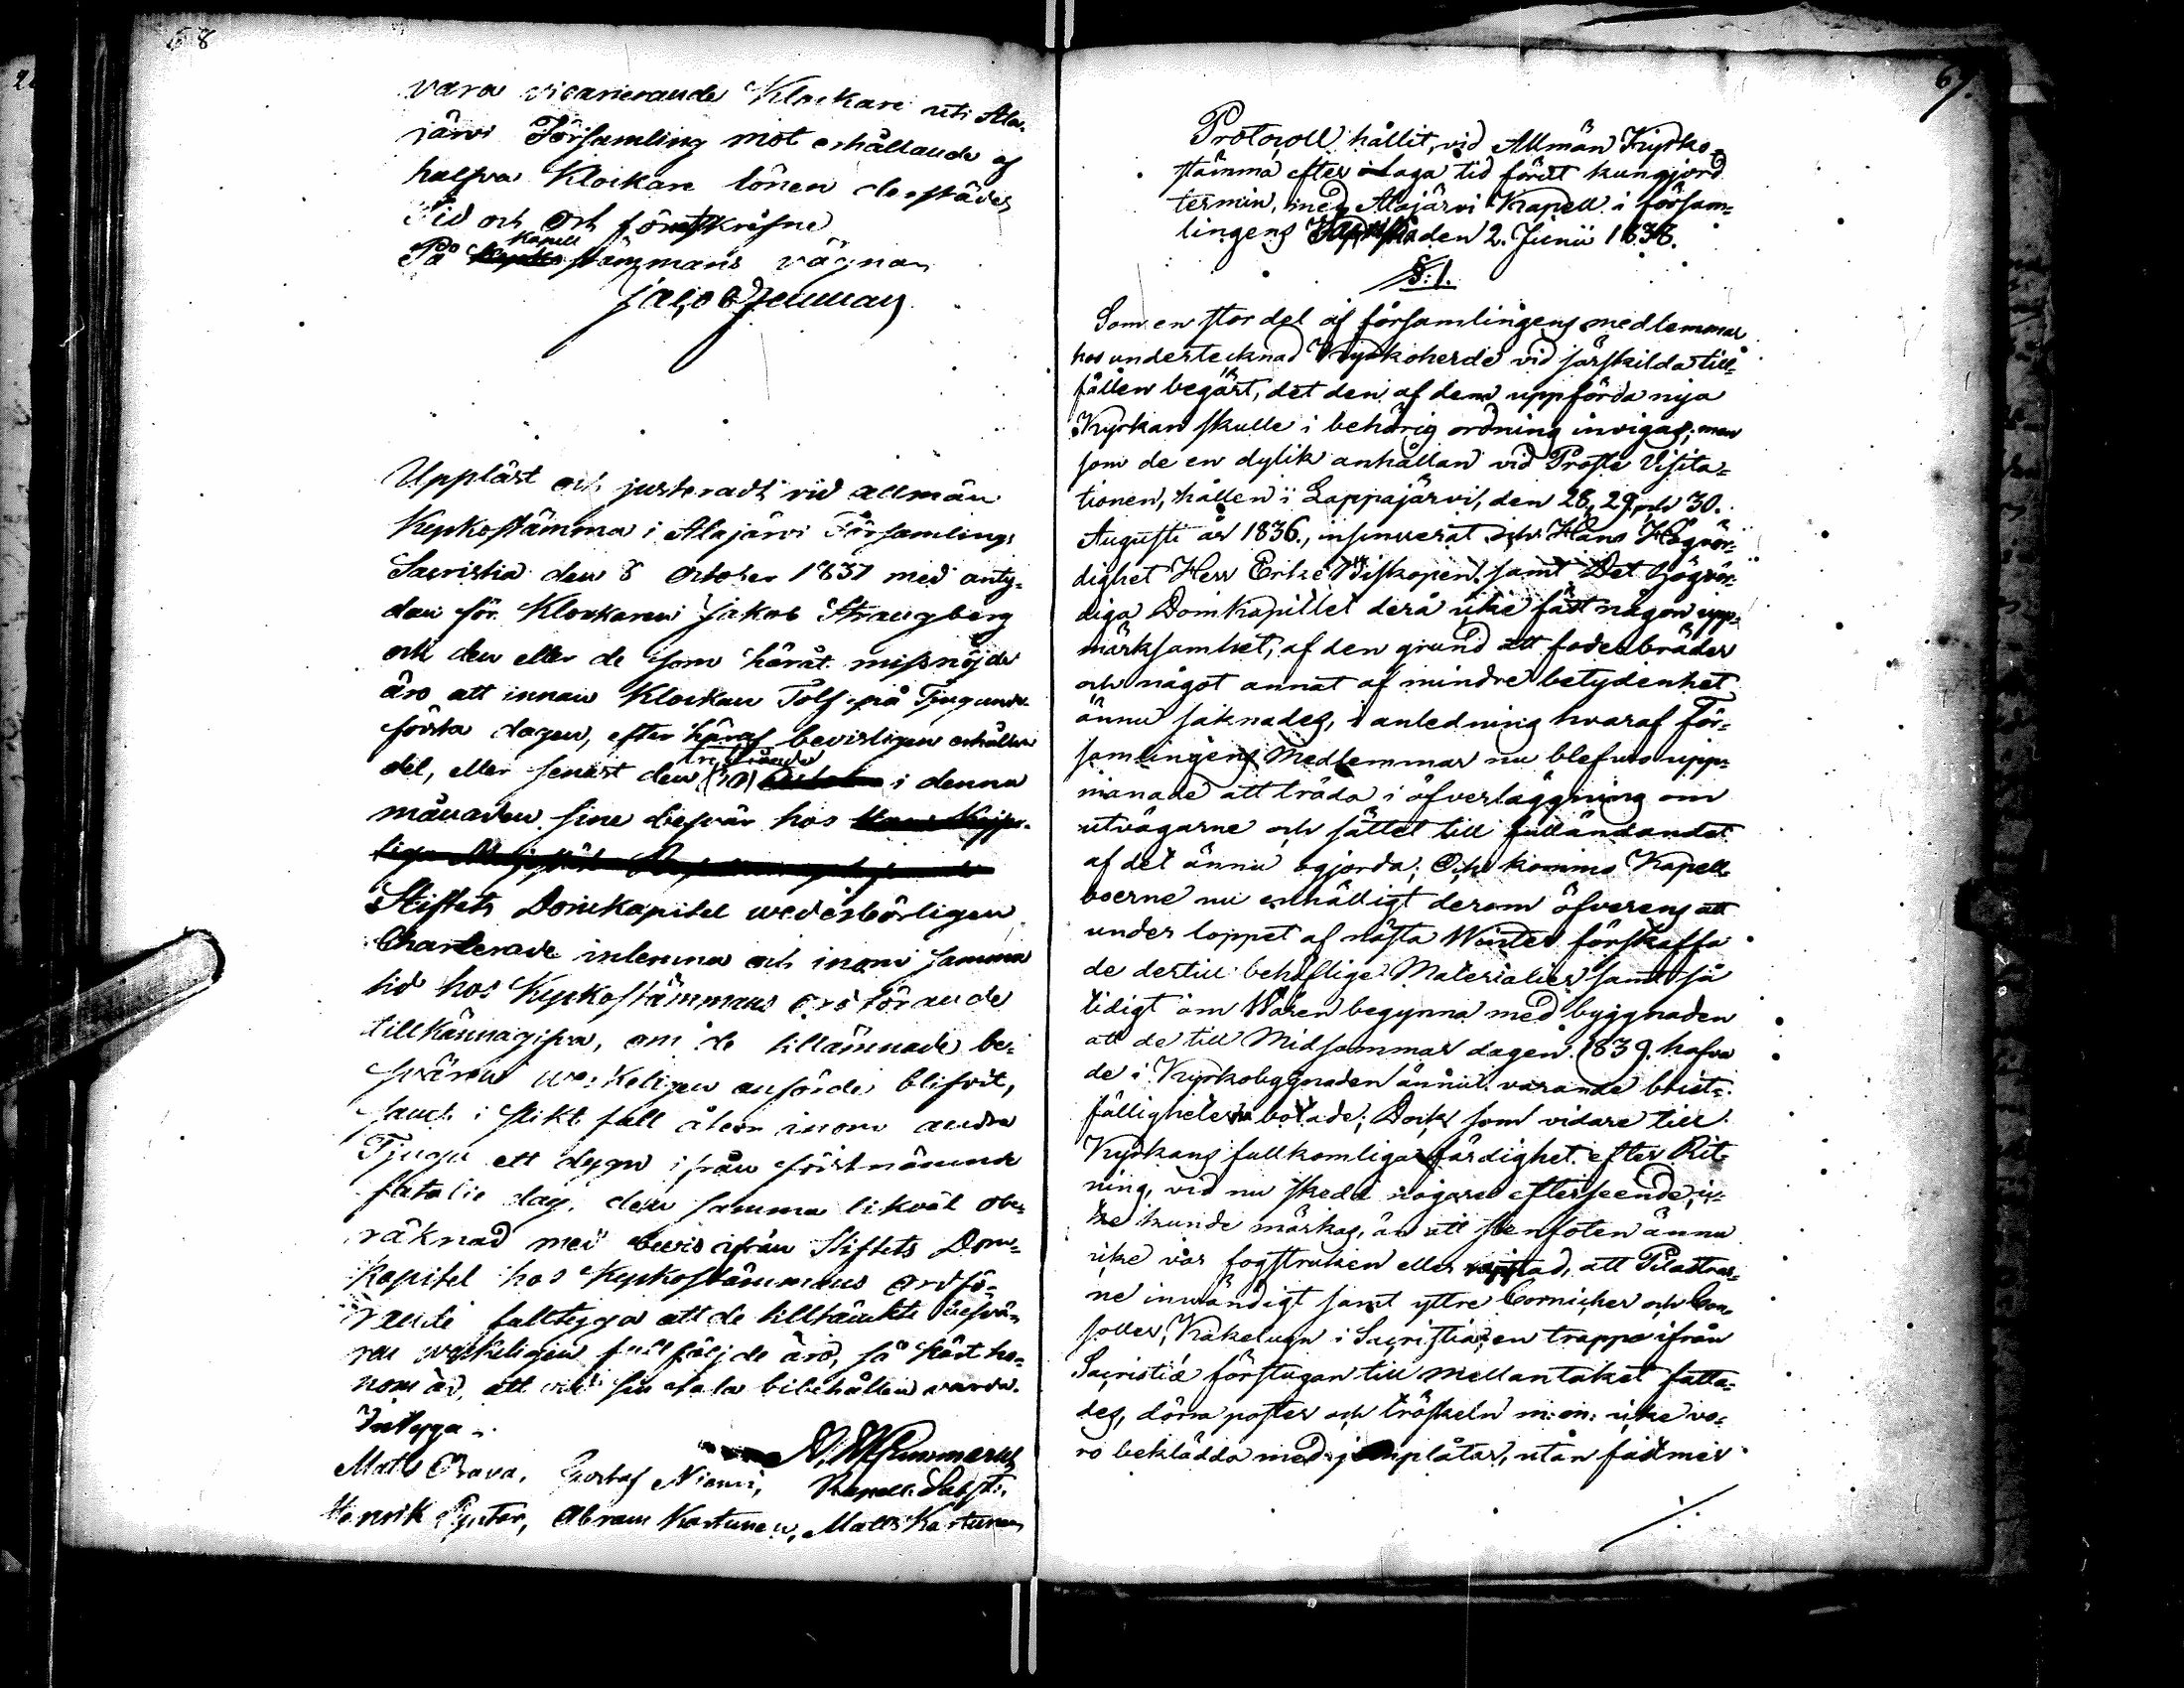 68
vara vicarierande Klockare uti Ala-
järvi Församling mot erhållande af
halfva Klockare lönen derstädes
Tid och Ort förutskrifne
Kapell
På stämmans vägnar
Jacob

Uppläst och justeradt vid allmän
Kyrkostämma i Alajärvi Församlings
Sacristia den 8 October 1837 med anty-
dan för Klockaren Jakob Strangberg
och den eller de som häråt missnöjde
äro att innan Klockan Tolf på Tjugunde
första dagen, efter häraf bevisligen erhållen
trettionde
del, eller senast den (30) i denna
månaden sine besvär hos
Stiftets Domkapitel wederbörligen
Charterade inlemna och inom samma
tid hos Kyrkostämmans ordförande
tillkännagifva, om de tillämnade be-
svären werkeligen anförde blifvit,
samt i slikt fall åter inom andra
Tjugu ett dygn ifrån förstnämnde
fatalie dag, den samma likväl obe-
räknad med bevis ifrån Stiftets Dom-
kapitel hos Kyrkostämmans ordfö-
rande fulltyga att de tilltänkte besvä-
ren werkeligen fullföljde äro, så kärt ho-
nom är, att vid sin talan bibehållen warda.
Intyga
Kapell. Sacrst.
Matts Orava, Gustaf Niemi,
Henrik Pyntar, Abram Kortunen, Matts Kortunen

69.
Protocoll hållit, vid Allmän Kyrko-
stämma efter i Laga tid förut kungjord
termin, med Alajärvi Kapell i försam-
lingens den 2. Junii 1838.
§: 1.
Som en stor del af församlingens medlemmar
hos undertecknad Kyrkoherde vid särskilda till-
fällen begärt, det den af dem uppförda nya
Kyrkan skulle i behörig ordning invigas; men
som de en dylik anhållan vid Prosta Visita-
tionen, hållen i Lappajärvi, den 28, 29, och 30.
Augusti år 1836., insinuerat och Hans Högvör-
dighet Herr Erke Biskopen samt Det högvör-
diga Domkapitlet derå icke fäst någon upp-
märksamhet, af den grund att foderbräder
och något annat af mindre betydenhet
ännu saknades, i anledning hvaraf För-
samlingens Medlemmar nu blefvo upp-
manade att träda i öfverläggning om
utvägarne och sättet till fulländandet
af det ännu ogjorda; Och kommo Kapell-
boerne nu enhälligt derom öfverens att
under loppet af nästa Winter förskaffa
de dertill behöflige Materialier samt så
tidigt om Wåren begynna med byggnaden
att de till Midsommar dagen 1839. hafva
de i Kyrkobyggnaden ännu varande brist-
fälligheterna botade; Dock som vidare till
Kyrkans fullkomliga färdighet efter Rit-
ning, vid nu skedd nogare efterseende, ic-
ke kunde märkas, än att stenfoten ännu
icke var fogstruken eller rappad, att Pilastrar-
ne inwändigt samt yttre Cornicher och Con-
soller, Kakelugn i Sacristian, en trappa ifrån
Sacristiæ förstugan till mellantaket fatta-
des, dörra poster och tröskeln m: m: icke vo-
ro beklädda med jernplåtar, utan färdmed